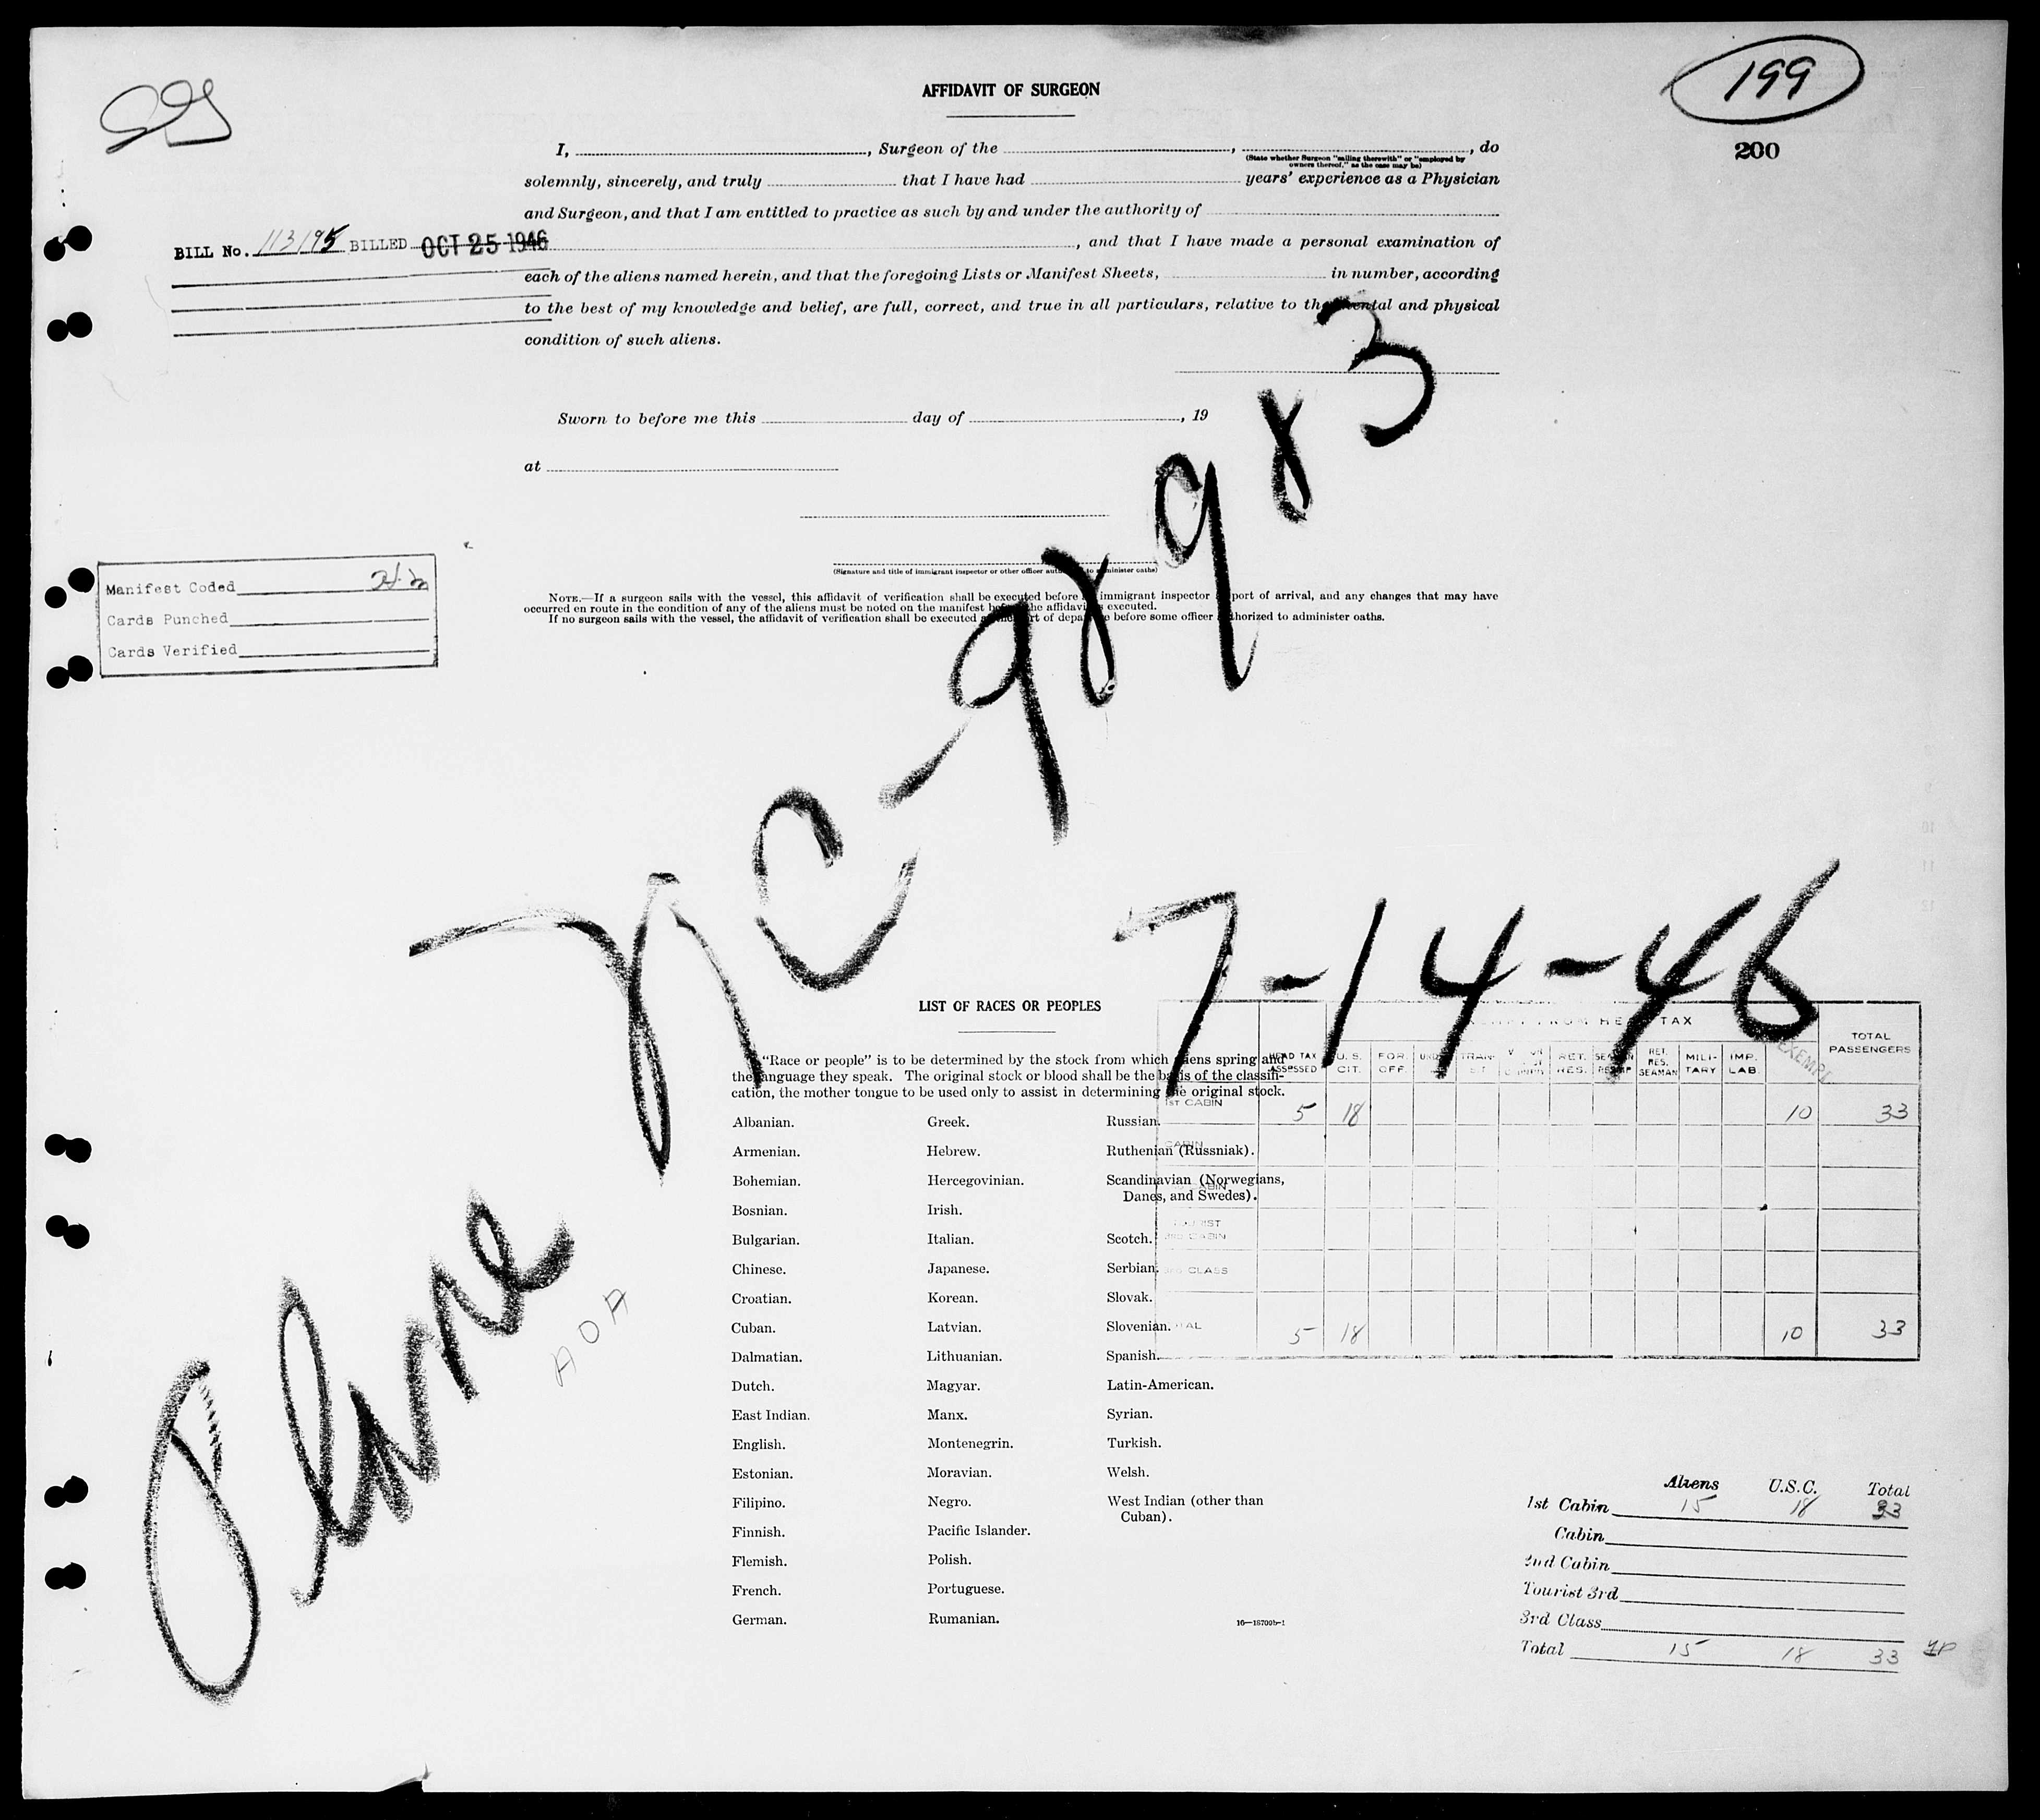 AFFIDAVIT OF SURGEON
199
200
I, , Surgeon of the , , do
(State whether Surgeon "sailing therewith" or "employed by
owners thereof," as the case may be)
solemnly, sincerely, and truly that I have had years' experience as a Physician
and Surgeon, and that I am entitled to practice as such by and under the authority of
BILL No. 113195 BILLED OCT 25 1946
, and that I have made a personal examination of
each of the aliens named herein, and that the foregoing Lists or Manifest Sheets, in number, according
to the best of my knowledge and belief, are full, correct, and true in all particulars, relative to the mental and physical
condition of such aliens.
Sworn to before me this day of , 19
at
(Signature and title of immigrant inspector or other officer authorized to administer oaths)
Manifest Coded
Cards Punched
Cards Verified
NOTE.—If a surgeon sails with the vessel, this affidavit of verification shall be executed before immigrant inspector port of arrival, and any changes that may have
occurred en route in the condition of any of the aliens must be noted on the manifest before the affidavit is executed.
If no surgeon sails with the vessel, the affidavit of verification shall be executed at the port of departure before some officer authorized to administer oaths.
Plane NC-98983
7-14-46
AOA
LIST OF RACES OR PEOPLES
"Race or people" is to be determined by the stock from which aliens spring and
the language they speak. The original stock or blood shall be the basis of the classifi-
cation, the mother tongue to be used only to assist in determining the original stock.
Albanian. Greek. Russian.
Armenian. Hebrew. Ruthenian (Russniak).
Bohemian. Hercegovinian. Scandinavian (Norwegians,
Danes, and Swedes).
Bosnian. Irish.
Bulgarian. Italian. Scotch.
Chinese. Japanese. Serbian.
Croatian. Korean. Slovak.
Cuban. Latvian. Slovenian.
Dalmatian. Lithuanian. Spanish.
Dutch. Magyar. Latin-American.
East Indian. Manx. Syrian.
English. Montenegrin. Turkish.
Estonian. Moravian. Welsh.
Filipino. Negro. West Indian (other than
Cuban).
Finnish. Pacific Islander.
Flemish. Polish.
French. Portuguese.
German. Rumanian.
16—18700b-1
FROM HEAD TAX
HEAD TAX ASSESSED U.S. CIT. FOR. OFF. RET. RES. RET. RES. SEAMAN MILI-TARY IMP. LAB. EXEMPT TOTAL PASSENGERS
1ST CABIN 5 18 10 33
CABIN
CABIN
TOURIST
3RD CABIN
CLASS
TOTAL 5 18 10 33
Aliens U.S.C. Total
1st Cabin 15 18 33
Cabin
2nd Cabin
Tourist 3rd
3rd Class
Total 15 18 33